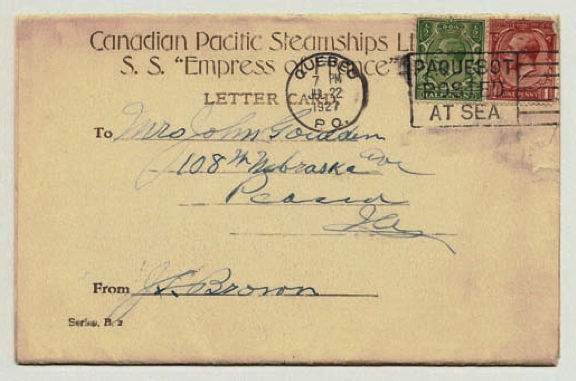 Canadian Pacific Steamships L
S. S. "Empress of France"
LETTER CARD
QUEBEC
7 PM
JL 22
1927
P.Q.
PAQUEBOT
POSTED
AT SEA
To Mrs John
108 W Nebraska Ave
Peoria
From J. S. Brown
Series, B. 2